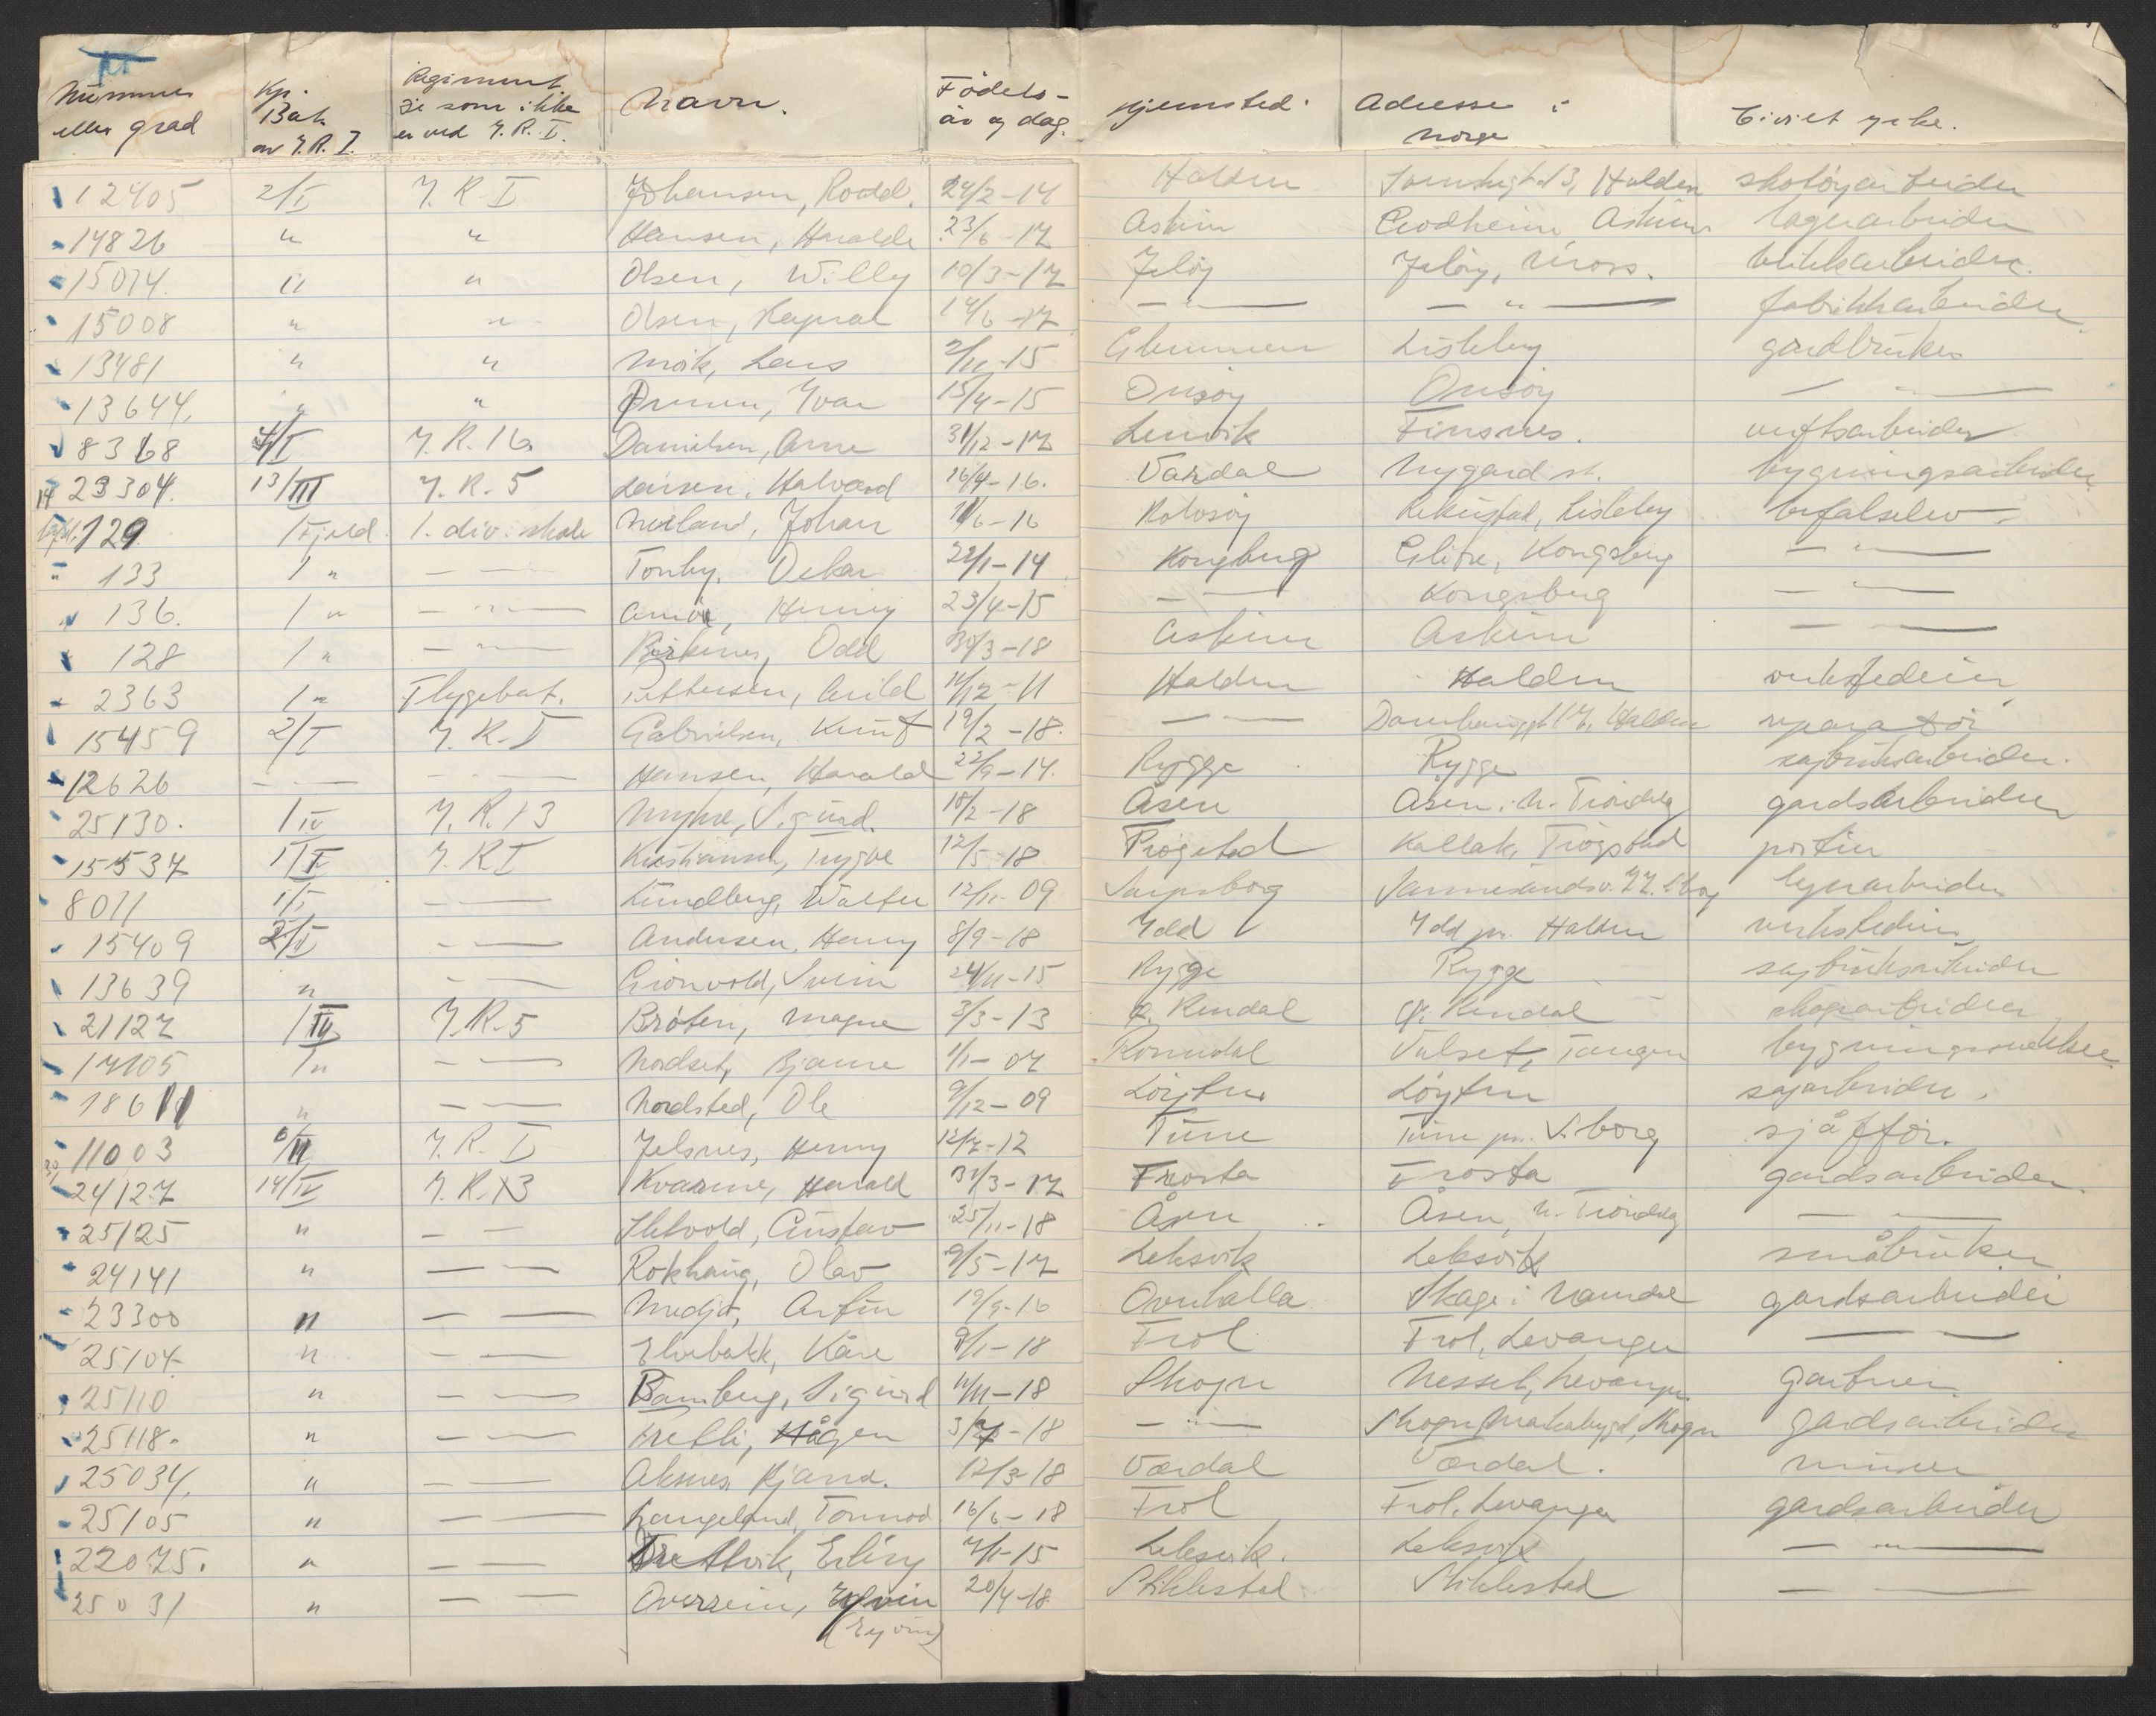 Nummer eller grad | Kp. Bat. av I.R. I. | Regiment de som ikke er ved I.R. I. | Navn. | Fødels- år og dag. | Hjemsted. | Adresse i Norge | Civilt yrke.
12405 | 2/I | I.R. I | Johansen, Rodd. | 24/2-14 | Halden | Halden | skotøyarbeider
14826 | " | " | Hansen, Haralds | 23/6-17 | Askim | Askim | lagerarbeider
15014. | " | " | Olsen, Willy | 10/3-17 | Jeløy | Jeløy, Moss. | blikkarbeider.
15008 | " | " | Olsen, Ragnar | 14/6-17 | — " — | — " — | fabrikkarbeider
13481 | " | " | Mørk, Lars | 2/11-15 | Glemmen | Lisleby | gårdbruker
13644. | " | " | Ivar | 15/4-15 | Onsøy | Onsøy | — " —
8368 | 4/I | I.R. 16. | Danielsen, Arne | 31/12-17 | Lenvik | Finsnes. | verftsarbeider
23304. | 13/III | I.R. 5 | Larsen, Halvard | 16/4-16. | Vardal | Nygard st. | bygningsarbeider
129 | 1 Fjeld. | 1. div. skole | Johan | 11/6-16 | Rolvsøy | Lisleby | befalselev
" 133 | 1 " | — " — | Tonby, Oskar | 22/1-14 | Kongsberg | Glitre, Kongsberg | — " —
136. | 1 " | — " — | Henry | 23/4-15 | — " — | Kongsberg | — " —
128 | 1 " | — " — | Birkenes, Odd | 30/3-18 | Askim | Askim | — " —
2363 | 1 " | Flygebat. | Pettersen, Arild | 14/12-11 | Halden | Halden | verksfedeier
15459 | 2/I | I.R. I | Gabrielsen, Kunt | 19/2-18. | — " — | Halden | reparatør
12626 | — " — | — " — | Hansen, Harald | 22/9-14. | Rygge | Rygge | sagbruksarbeider.
25130. | 1 IV | I.R. 13 | Myhre, Sigurd. | 18/2-18 | Åsen | Åsen, N. Trøndelag | gardsarbeider
15537 | 1/I | I.R I | Kristiansen, Trygve | 12/5-18 | Trøgsted | Kallak, Trøgstad | portier
8011 | 1/I | — " — | Lundberg, Walter | 12/11-09 | Sarpsborg | Sannesundsv. 77. S.borg | lagerarbeider
15409 | 2/I | — " — | Andersen, Henry | 8/9-18 | Idd | Idd pr. Halden | verkstedeier
13639 | " | — " — | Grønvold, Svein | 24/11-15 | Rygge | Rygge | sagbruksarbeider
21127 | 1 IV | I.R. 5 | Bråten, Magne | 3/3-13 | Ø. Rendal | Ø. Rendal | skogsarbeider
17105 | 1 " | — " — | Nordset, Bjarne | 1/1-07 | Romedal | Vulset, Tangen | bygningssnekker
18611 | " | — " — | Nordsted, Ole | 9/12-09 | Løyten | Løyten | sagarbeider.
11003 | 6/II | I.R. I | Jelsnes, Henry | 12/7-12 | Tune | Tune pr. S.borg | sjåffør.
24127 | 14/IV | I.R. 13 | Kvarme, Harald | 31/3-17 | Frosta | Frosta | gardsarbeider.
25125 | " | — " — | Gustav | 25/11-18 | Åsen | Åsen, N. Trøndelag | — " —
24141 | " | — " — | Rokhaug, Olav | 9/5-17 | Leksvik | Leksvik | småbruker
23300 | " | — " — | Medjå, Arfin | 19/9-16 | Overhalla | Skage i Namdal | gardsarbeider
25104 | " | — " — | Elvebakk, Kåre | 9/1-18 | Frol | Frol, Levanger | — " —
25110 | " | — " — | Bamberg, Sigurd | 11/11-18 | Skogn | Nesset, Levanger. | gartner
25118. | " | — " — | Tretli, Hågen | 3/7-18 | — " — | Skogn, Markabygd, Skogn | gardsarbeider
25034. | " | — " — | Aksnes, | 12/3-18 | Værdal | Værdal. | murer
25105 | " | — " — | Langeland, Tormod | 16/6-18 | Frol | Frol, Levanger | gardsarbeider
22075. | " | — " — | Erling | 7/1-15 | Leksvik. | Leksvik | — " —
25031 | " | — " — | Overrein, Eyvin | 20/4-18 | Stiklestad | Stiklestad | — " —
(Eyvin)